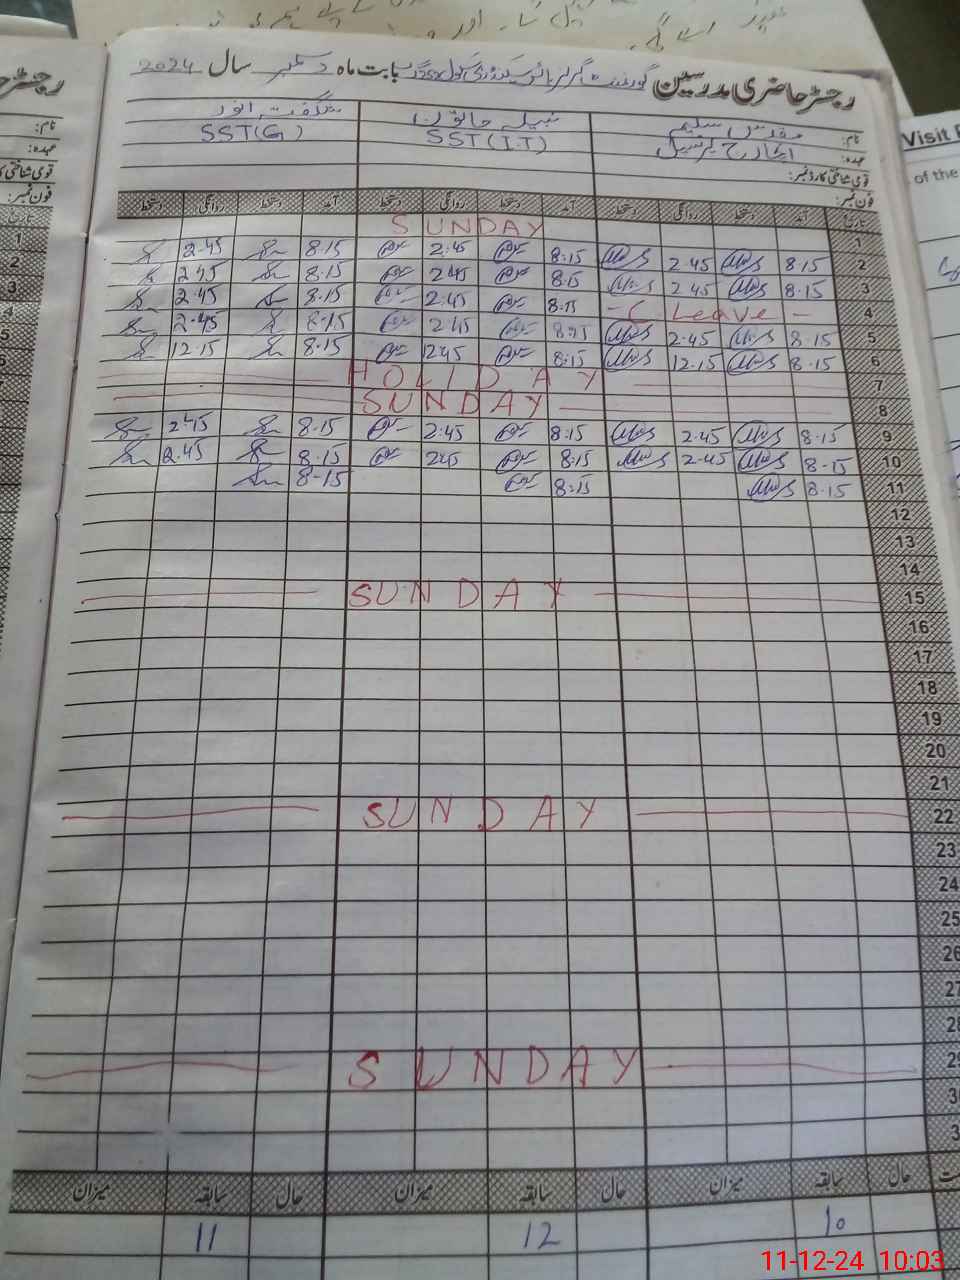 رجسٹر حاضری مدرسین گورنمنٹ گرلز ہائر سیکنڈری سکول بابت ماہ دسمبر سال 2024
نام: مقدس سلیم نبیلہ خاتون شگفتہ انور
عہدہ: انچارج پرنسپل SST(I.T) SST(G)
قومی شناختی کارڈ نمبر:
فون نمبر:
تاریخ آمد دستخط روانگی دستخط آمد دستخط روانگی دستخط آمد دستخط روانگی دستخط
1 SUNDAY
2 8.15 2.45 8:15 2:45 8.15 2.45
3 8.15 2.45 8.15 2.45 8.15 2.45
4 C Leave 8.15 2.45 8.15 2.45
5 8.15 2.45 8.15 2.45 8.15 2.45
6 8.15 12.15 8:15 12.45 8.15 12.15
7 HOLIDAY
8 SUNDAY
9 8.15 2.45 8:15 2.45 8.15 2.45
10 8.15 2.45 8:15 2.45 8.15 2.45
11 8.15 8:15 8.15
12
13
14
15 SUNDAY
16
17
18
19
20
21
22 SUNDAY
23
24
25
26
27
28
29 SUNDAY
30
3
حال سابقہ میزان حال سابقہ میزان حال سابقہ میزان
10 12 11
Visit
of the
11-12-24 10:03